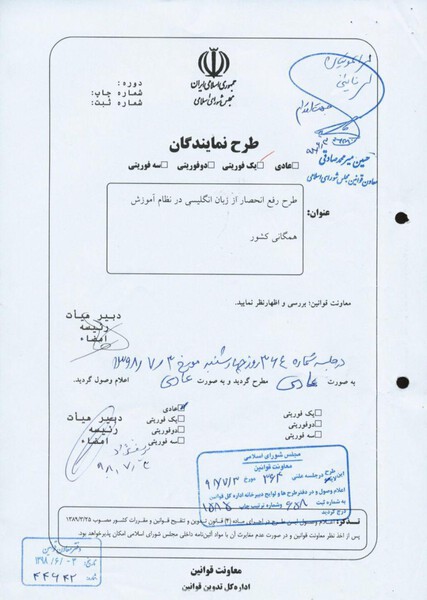 جمهوری اسلامی ایران
مجلس شورای اسلامی
دوره:
شماره چاپ:
شماره ثبت:
حسین میرمحمد صادقی
معاون قوانین مجلس شورای اسلامی
طرح نمایندگان
عادی یک فوریتی دوفوریتی سه فوریتی
عنوان:
طرح رفع انحصار از زبان انگلیسی در نظام آموزش
همگانی کشور
معاونت قوانین: بررسی و اظهارنظر نمایید.
دبیر هیات
رئیسه
امضاء
در جلسه شماره ۳۶۴ روز چهارشنبه مورخ ۱۳۹۸/۷/۳
به صورت عادی مطرح گردید و به صورت عادی اعلام وصول گردید.
عادی
یک فوریتی
دوفوریتی
سه فوریتی
دبیر هیات
رئیسه
امضاء
۹۸/۷/۳
مجلس شورای اسلامی
معاونت قوانین
این طرح در جلسه علنی ۳۶۴ مورخ ۹۸/۷/۳
اعلام وصول و در دفتر طرح ها و لوایح دبیرخانه اداره کل قوانین
به شماره ثبت ۶۸۸ و شماره ترتیب چاپ ۱۵۸۵
درج گردید
تذکر: اعلام وصول این طرح در اجرای ماده (۴) قانون تدوین و تنقیح قوانین و مقررات کشور مصوب ۱۳۸۹/۳/۲۵
پس از اخذ نظر معاونت قوانین و در صورت عدم مغایرت آن با مواد آئین‌نامه داخلی مجلس شورای اسلامی امکان پذیر خواهد بود.
دفتر معاون قوانین
تاریخ: ۱۳۹۸/۶/۰۳
شماره: ۴۴۶۴۲
معاونت قوانین
اداره کل تدوین قوانین